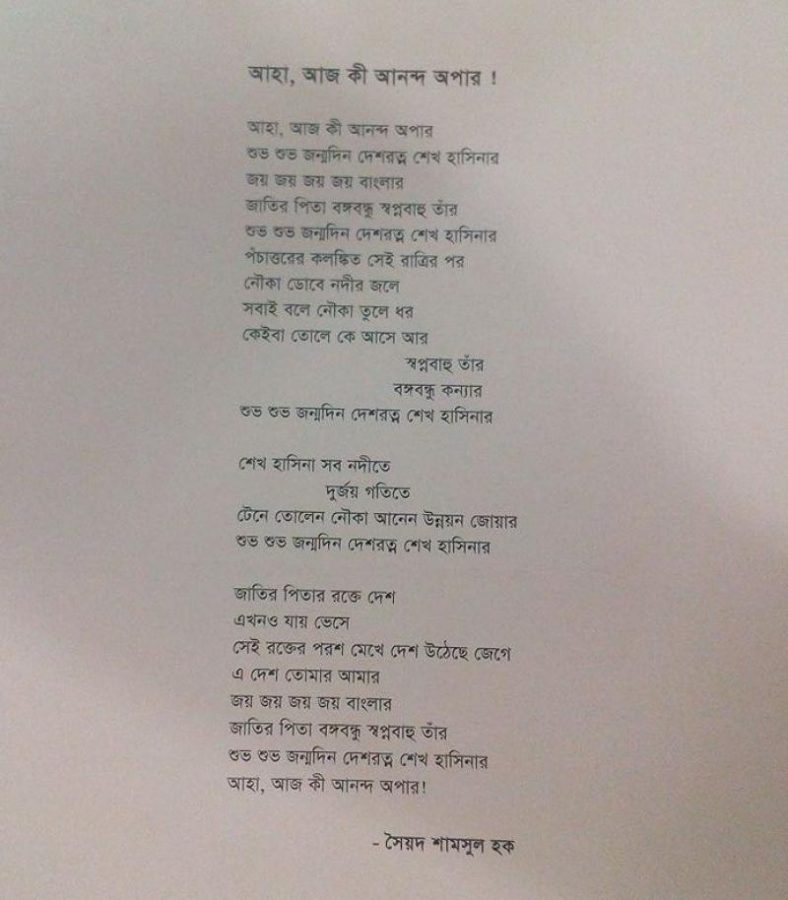 আহা, আজ কী আনন্দ অপার !
আহা, আজ কী আনন্দ অপার
শুভ শুভ জন্মদিন দেশরত্ন শেখ হাসিনার
জয় জয় জয় জয় বাংলার
জাতির পিতা বঙ্গবন্ধু স্বপ্নবাহু তাঁর
শুভ শুভ জন্মদিন দেশরত্ন শেখ হাসিনার
পঁচাত্তরের কলঙ্কিত সেই রাত্রির পর
নৌকা ডোবে নদীর জলে
সবাই বলে নৌকা তুলে ধর
কেইবা তোলে কে আসে আর
স্বপ্নবাহু তাঁর
বঙ্গবন্ধু কন্যার
শুভ শুভ জন্মদিন দেশরত্ন শেখ হাসিনার
শেখ হাসিনা সব নদীতে
দুর্জয় গতিতে
টেনে তোলেন নৌকা আনেন উন্নয়ন জোয়ার
শুভ শুভ জন্মদিন দেশরত্ন শেখ হাসিনার
জাতির পিতার রক্তে দেশ
এখনও যায় ভেসে
সেই রক্তের পরশ মেখে দেশ উঠেছে জেগে
এ দেশ তোমার আমার
জয় জয় জয় জয় বাংলার
জাতির পিতা বঙ্গবন্ধু স্বপ্নবাহু তাঁর
শুভ শুভ জন্মদিন দেশরত্ন শেখ হাসিনার
আহা, আজ কী আনন্দ অপার!
- সৈয়দ শামসুল হক